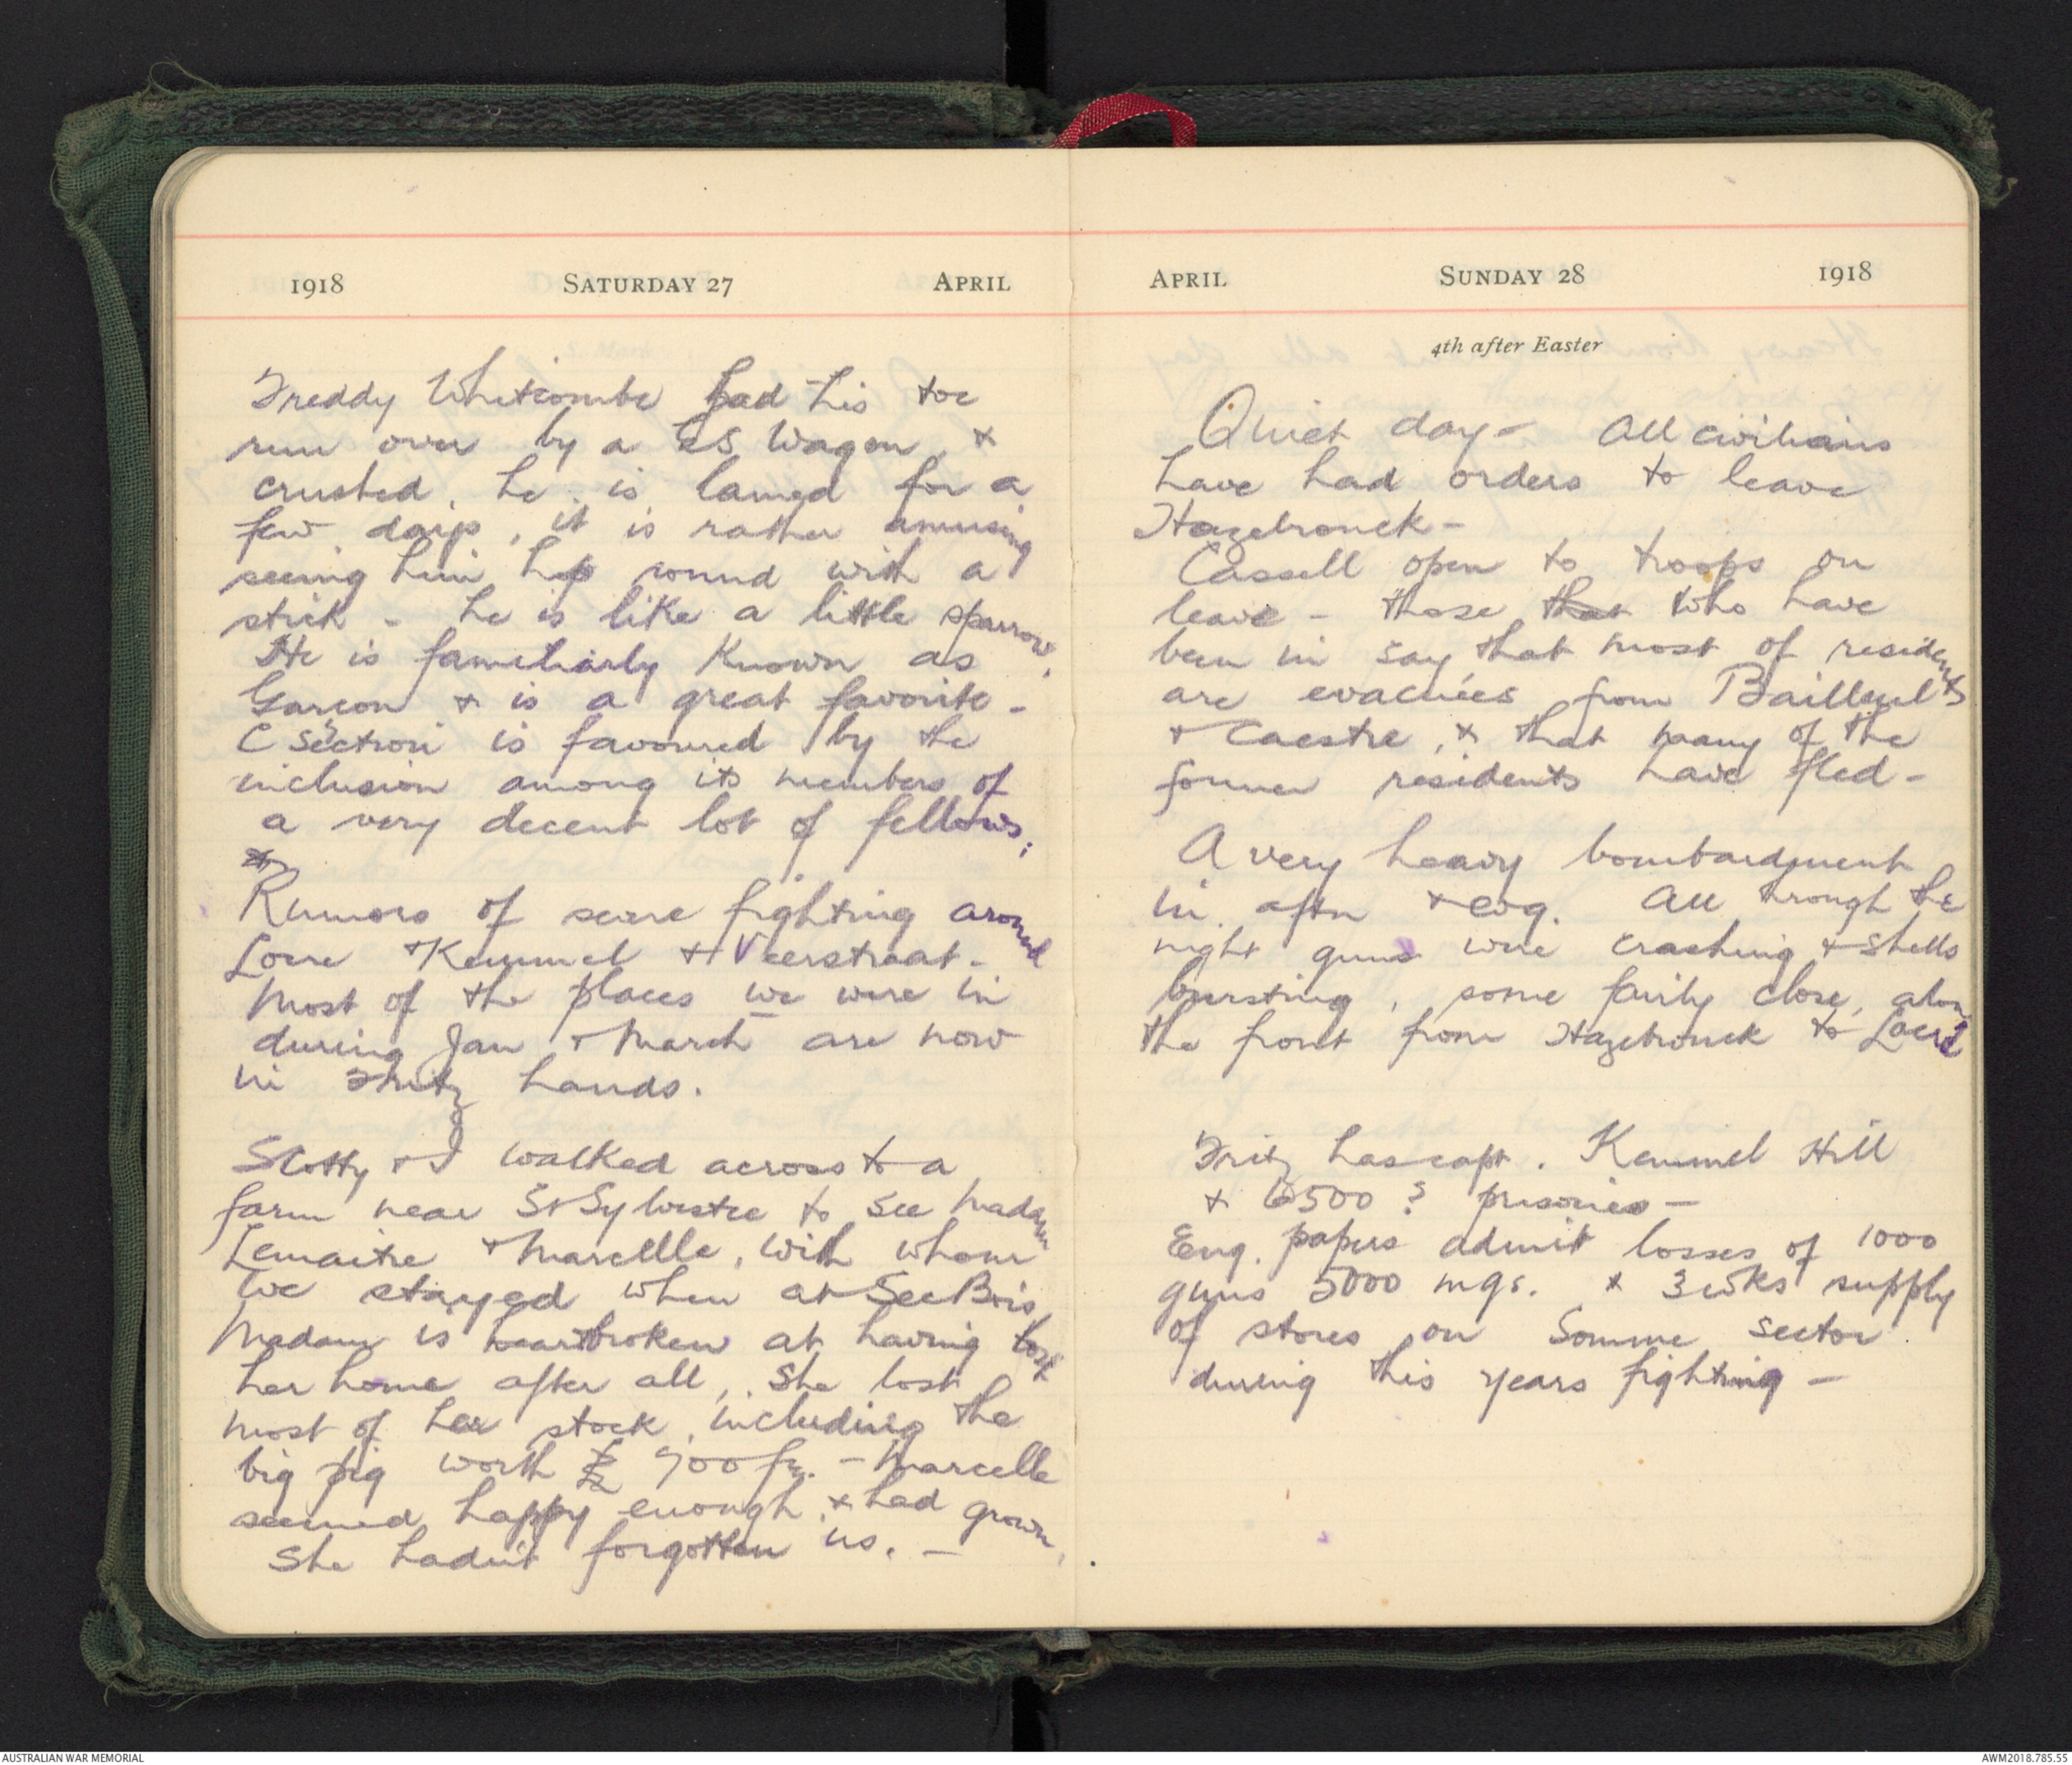 1918 SATURDAY 27 APRIL
Freddy Whitcombe had his toe
run over by a GS Wagon, &
crushed. he is lamed for a
few days, it is rather amusing
seeing him hop round with a
stick - he is like a little sparrow.
He is familiarly known as
Garçon & is a great favorite -
C Section is favoured by the
inclusion among its members of
a very decent lot of fellows;
Rumors of severe fighting around
Locre & Kemmel & Vierstraat -
Most of the places we were in
during Jan & March are now
in Fritz hands.
Scotty & I walked across to a
farm near St Sylvestre to see Madam
Lemaitre & Marcellle, with whom
we stayed when at Sec Bois
Madam is heartbroken at having lost
her home after all, She lost
most of her stock, including the
big pig worth £ 700 fr. - Marcelle
seemed happy enough, & had grown,
She hadn't forgotten us. -
APRIL SUNDAY 28 1918
4th after Easter
Quiet day - All civilians
have had orders to leave
Hazebrouck -
Cassell open to troops on
leave - those that who have
been in say that most of residents
are evacuées from Bailleul
& Caestre, & that many of the
former residents have fled -
A very heavy bombardment
in aftn & evg. All through the
night guns were crashing & shells
bursting, some fairly close, along
the front from Hazebrouck to Locre
Fritz has capt. Kemmel Hill
& 6500 ? prisoners -
Eng. papers admit losses of 1000
guns 5000 mgs. & 3 wks supply
of stores on Somme sector
during this years fighting -
AUSTRALIAN WAR MEMORIAL
AWM2018.785.55